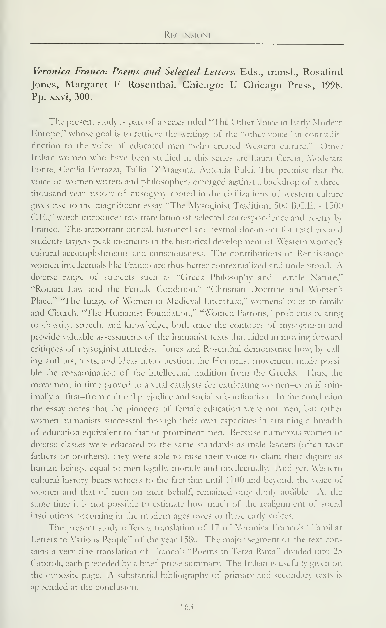 RECENSIONI
Veronica Franco: Poems and Selected Letters. Eds., transl., Rosalind
Jones, Margaret F. Rosenthal. Chicago: U Chicago Press, 1998.
Pp. xxvi, 300.
The present study is part of a series titled "The Other Voice in Early Modern
Europe," whose goal is to retrieve the writings of the "other voice" in
to the voice of educated men "who created Western culture." Other
Italian women who have been studied in this series are Laura Cereta, Moderata
Fonte, Cecilia Ferrazzi, Tullia D'Aragona, Antonia Pulci. The premise that the
voice of women writers and philosophers emerged against a backdrop of a three
thousand year history of misogyny rooted in the civilizations of western culture
gives rise to the magnificent essay "The Misogynist Tradition, 500 B.C.E. - 1500
C.E.," which introduces this translation of selected correspondence and poetry by
Franco. This important annal, historical and textual document for teachers and
students targets peak moments in the historical development of Western women's
cultural accomplishments and consciousness. The contributions of Renaissance
women intellectuals like Franco are thus better contextualized and understood. A
diverse range of subjects such as "Greek Philosophy and Female Nature,"
"Roman Law and the Female Condition," "Christian Doctrine and Women's
Place," "The Image of Women in Medieval Literature," women's roles in family
and Church, "The Humanist Foundation," "Women Patrons," problems relating
to chastity, speech, and knowledge, both trace the contours of misogynism and
provide valuable assessments of the humanist texts that aided in moving forward
critiques of misogynist attitudes. Jones and Rosenthal demonstrate how, by
authors, texts, and ideas into question, the Humanist movement made
the re-examination of the intellectual tradition from the Greeks. Thus, the
movement, in time proved to a vital catalysts for
at first from cultural prejudice and social subordination. In the conclusion
the essay notes that the pioneers of female education were not men, but rather
women humanists successful through their own capacities in attaining a breadth
of education equivalent to that of prominent men. Because numerous women of
diverse classes were educated to the same standards as male leaders (often their
fathers or brothers), they were able to raise their voice to claim their dignity as
human beings, equal to men legally, morally and intellectually. And yet, Western
cultural history bears witness to the fact that until 1700 and beyond, the voice of
women and that of men on their behalf, remained only dimly audible. At the
same time it is not possible to estimate how much of the realignment of social
institutions occurring in the modern ages owes to those early voices.
The present study offers a translation of 17 of Veronica Franco's "Familiar
Letters to Various People" of the year 1580. The major segment of the text
a very fine translation of Franco's "Poems in Terza Rima" divided into 25
Capitoli, each preceded by a brief prose summary. The Italian is usefully given on
the opposite page. A substantial bibliography of primary and secondary texts is
appended at the conclusion.